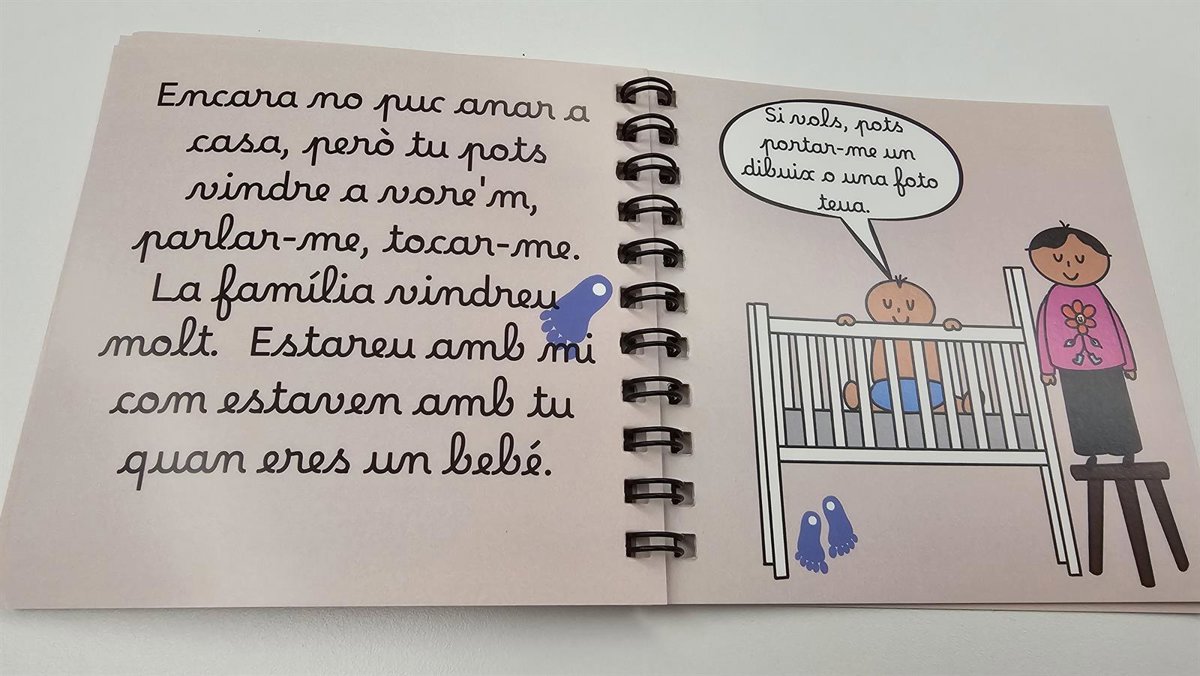 Encara no puc anar a
casa, però tu pots
vindre a vore'm,
parlar-me, tocar-me.
La família vindreu
molt. Estareu amb mi
com estaven amb tu
quan eres un bebé.
Si vols, pots
portar-me un
dibuix o una foto
teua.